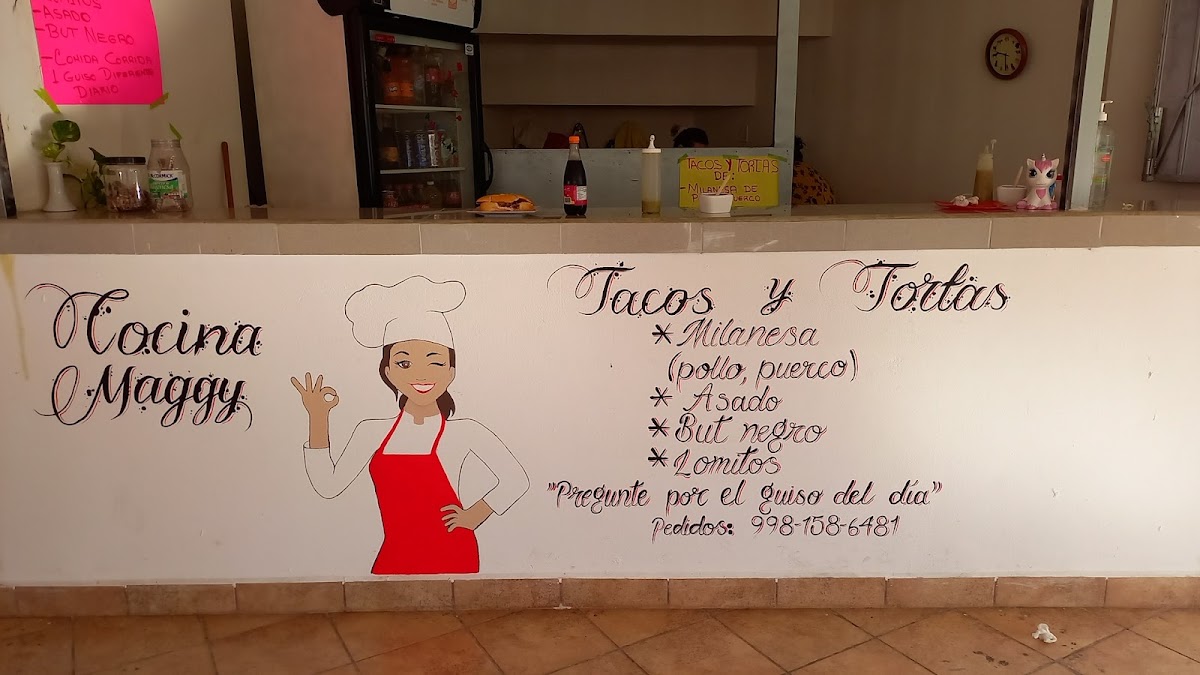 -ASADO
-BUT NEGRO
-COMIDA CORRIDA
1 GUISO DIFERENTE
DIARIO
TACOS Y TORTAS
DE:
-MILANESA DE
McCORMICK
Cocina
Maggy
Tacos y Tortas
* Milanesa
(pollo, puerco)
* Asado
* But negro
* Lomitos
"Pregunte por el guiso del día"
Pedidos: 998-158-6481